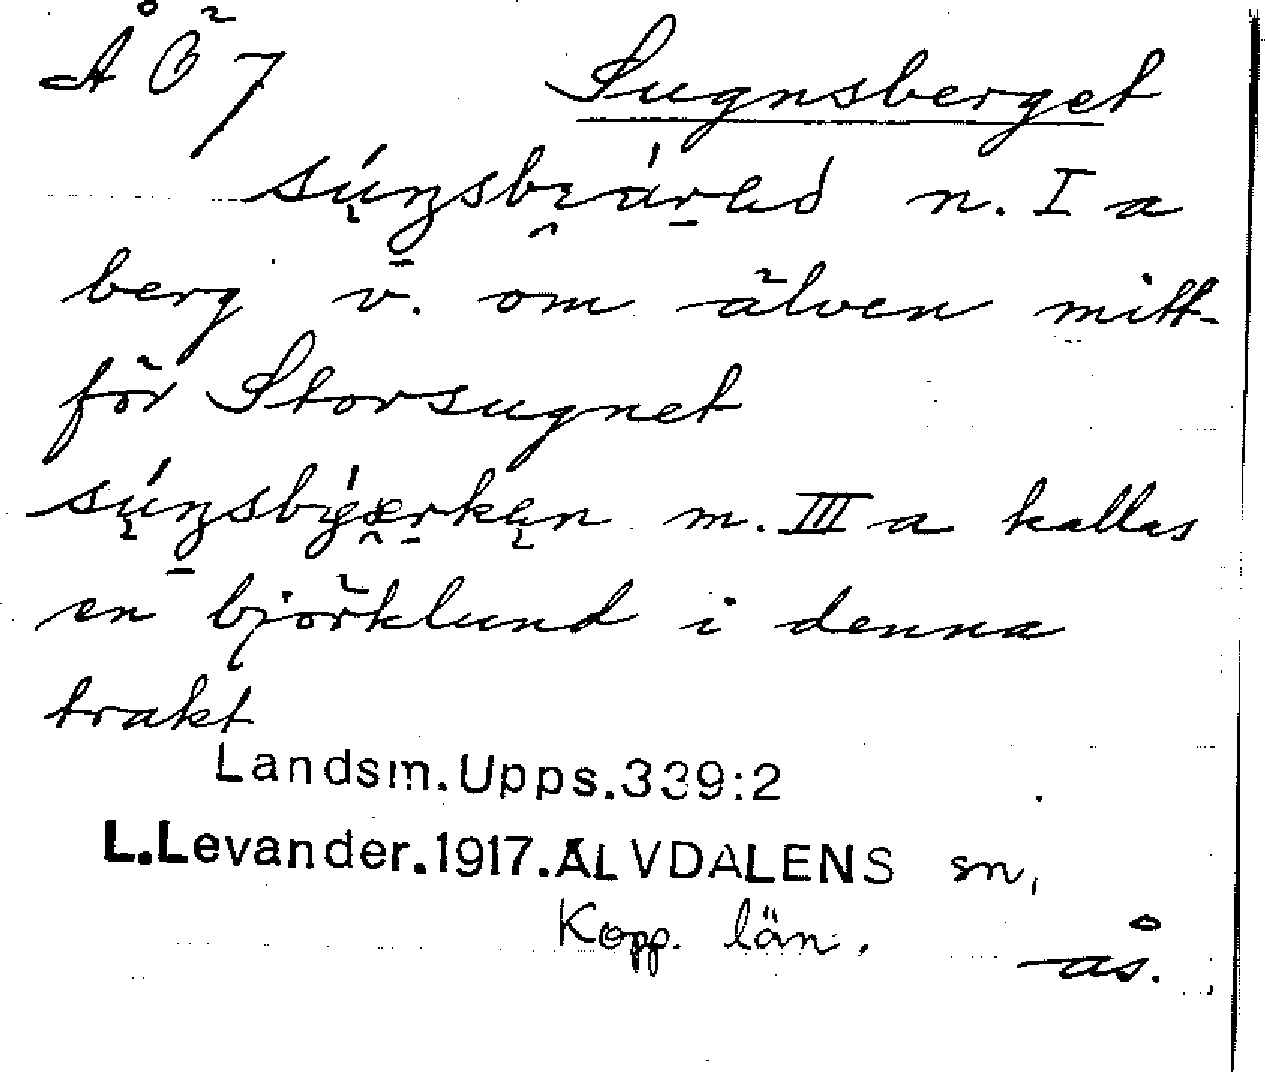 ÅÖ7 Sugnsberget
n. I a
berg v. om älven mitt-
för Storsugnet
m. III a kallas
en björklund i denna
trakt
Landsm. Upps. 339:2
L. Levander. 1917. ÄLVDALENS sn,
Kopp. län.
ås.